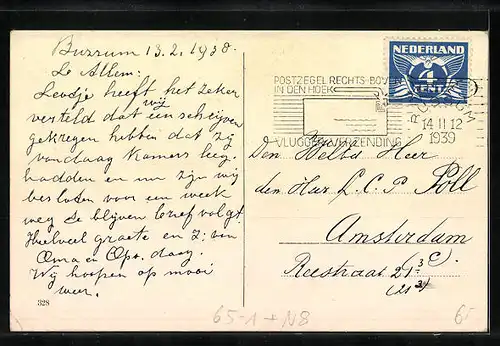 Bussum 13.2.1938.
L. Allen:
Leosje heeft het zeker
verteld dat wij een schrijven
gekregen hebben dat zij
vandaag kamers leeg
hadden en nu zijn wij
besloten voor een week
weg te blijven brief volgt
Hoeveel groete en Z: van
Oma en Opa. daag.
Wij hoopen op mooi
weer.
328
NEDERLAND
CENT
POSTZEGEL RECHTS BOVEN
IN DEN HOEK
VLUGGER VERZENDING
BUSSUM
14 II 12
1939
Den Heer
den Heer L. C. P. Poll
Amsterdam
Reestraat 21
65-1 + N8
6-